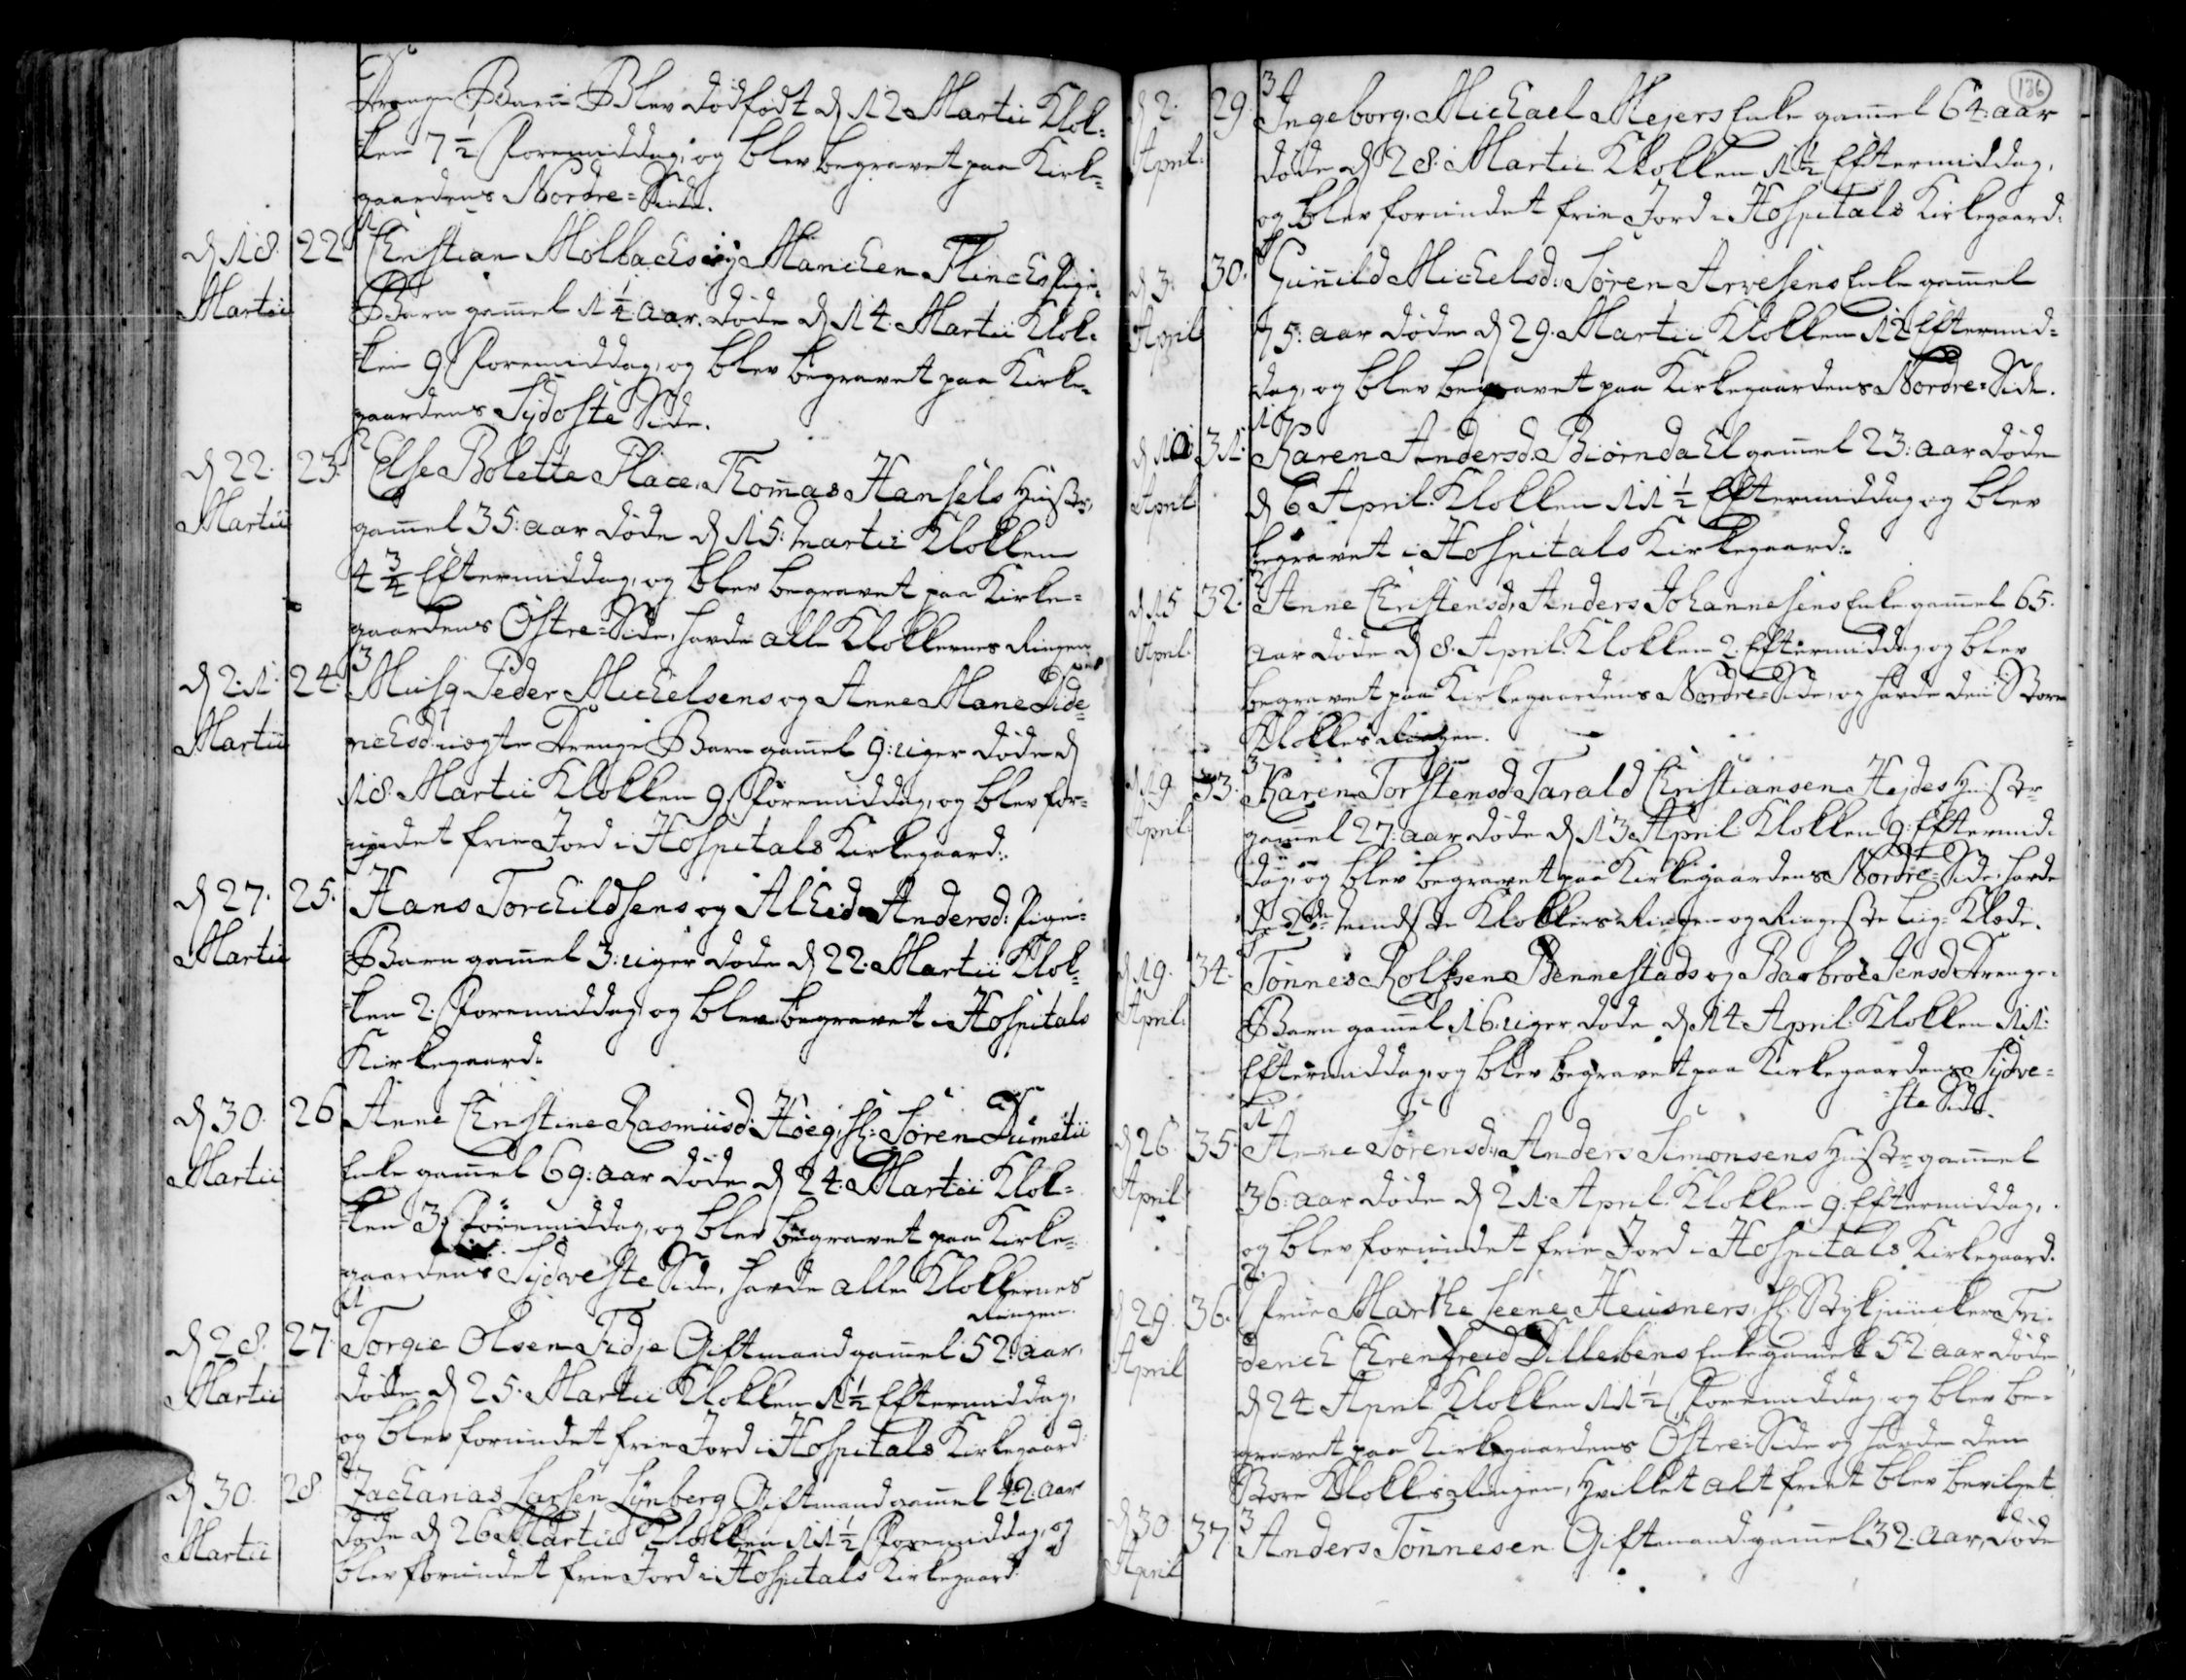 Drenge Barn Blev dødfødt d 12 Martii Klok=
ken 7 1/2 Formiddag, og blev begravet paa Kirke=
gaardens Nordre=Side.
d 18. Martii 22. 1 Christian Molbachs og Maricken Flinchs Pige=
Barn gam̄el 1 1/4 aar. døde d 14. Martii Klok=
ken 9 Formiddag, og blev begravet paa Kirke=
gaardens Sydoste Side.
d 22. Martii 23. 2 Else Bolette Place, Thom̄as Hansels Hustr,
gam̄el 35: aar døde d 15: Martii Klokken
4 3/4 Eftermiddag, og blev begravet paa Kirke=
gaardens Østre=Side, havde alle Klokkernes Ringen
d 21. Martii 24. 3 Musq Peder Michelsens og Anne Marie Dide=
richsd: uegte Drenge Barn gam̄el 9: uger døde d
18. Martii Klokken 9 Formiddag, og blev for=
undet frie Jord i Hospitals Kirkegaard:
d 27. Martii 25. Hans Torchildsens og Alhed Andersd: Pige=
Barn gam̄el 3: uger døde d 22. Martii Klok=
ken 2. Formiddag og blev begravet i Hospitals
Kirkegaard:
d 30. Martii 26 Anne Christine Rasmusd: Høeg, Sl: Søren Dumetii
Enke gam̄el 69: aar døde d 24. Martii Klok=
ken 3 Formiddag, og blev begravet paa Kirke=
gaardens Sydveste Side, havde alle Klokkernes
Ringen.
d 28. Martii 27. 1 Torgie Olsen Fidje Giftmand gam̄el 52 aar,
døde d 25. Martii Klokken 1 1/2 Eftermiddag,
og blev forundet frie Jord i Hospitals Kirkegaard:
d 30. Martii 28. 2 Zacharias Larsen Lynberg Giftmand gam̄el 42. aar
døde d 26 Martii Klokken 11 1/2 Formiddag, og
blev forundet frie Jord i Hospitals Kirkegaard.
136
d 2. April. 29. 3 Ingeborg, Michael Mejers Enke gam̄el 64: aar
døde d 28. Martii Klokken 1 1/2 Eftermiddag,
og blev forundet frie Jord i Hospitals Kirkegaard:
d 3. April 30. Gun̄ild Michelsd: Søren Arvesens Enke gam̄el
75: aar døde d 29. Martii Klokken 12 Eftermid=
dag, og blev begravet paa Kirkegaardens Nordre=Side.
d 10 April 31. 1 Karen Andersd: Biørndahl gam̄el 23: aar døde
d 6 April. Klokken 11 1/2 Eftermiddag og blev
begravet i Hospitals Kirkegaard:
d 15 April. 32. 2 Anne Christensd, Anders Johannesens Enke gam̄el 65.
aar døde d 8. April. Klokken 2. Eftermiddag, og blev
begravet paa Kirkegaardens Nordre=Side, og havde den Store
Klokkes Ringen.
d 19 April. 33. 3 Karen Torstensd Tarald Christiansen Hejdes Hustr
gam̄el 27: aar døde d 13 April. Klokken 9: Eftermid=
dag, og blev begravet paa Kirkegaardens Nordre=Side, havde
de 2de mindste Klokkers Ringen og Ringeste Lig=Klæde.
d 19. April. 34. Tønnes Rolfsens Bennestads og Barbroe Jensd Drenge=
Barn gam̄el 16. uger, døde d 14 April. Klokken 11:
Eftermiddag, og blev begravet paa Kirkegaardens Sydve=
ste Side.
d 26. April 35. 1 Anne Sørensd:, Anders Simonsens Hustr gam̄el
36: aar døde d 21. April. Klokken 9: Eftermiddag,
og blev forundet frie Jord i Hospitals Kirkegaard.
d 29. April 36. 2. Frue Marthe Leene Heusners, Sl: Stykjunker Fri=
derich Ehrenfreid Dillebens Enke gam̄el 52 aar døde
d 24 April Klokken 11 1/2 Formiddag, og blev be=
gravet paa Kirkegaardens Østre=Side og havde den
Store Klokkes Ringen, hvilket alt friet blev bevilget.
d 30 April 37. 3 Anders Tønnesen Giftmand gam̄el 32. aar, døde